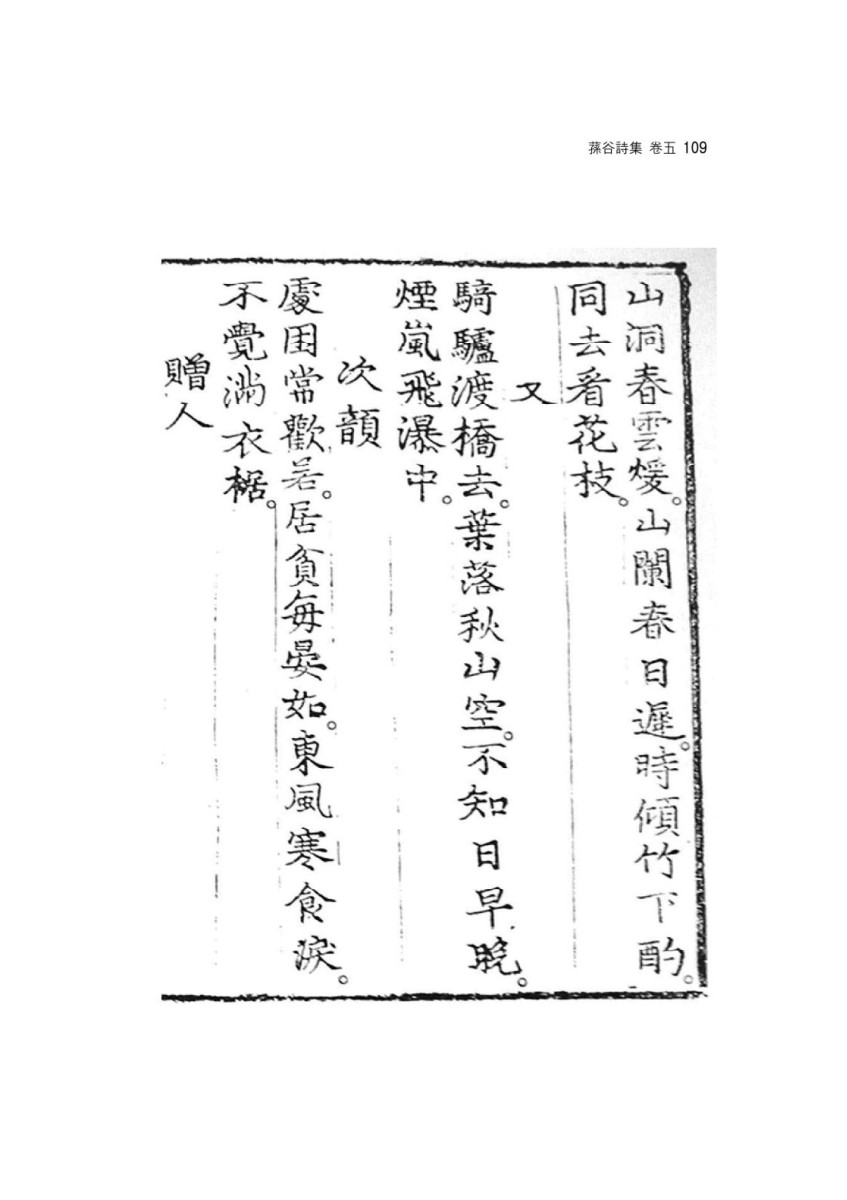 蓀谷詩集 卷五 109
山洞春雲煖。山闌春日遲。時傾竹下酌。
同去看花枝。
又
騎驢渡橋去。葉落秋山空。不知日早晩。
煙嵐飛瀑中。
次韻
處困常歡若。居貧每晏如。東風寒食淚。
不覺滿衣裾。
贈人